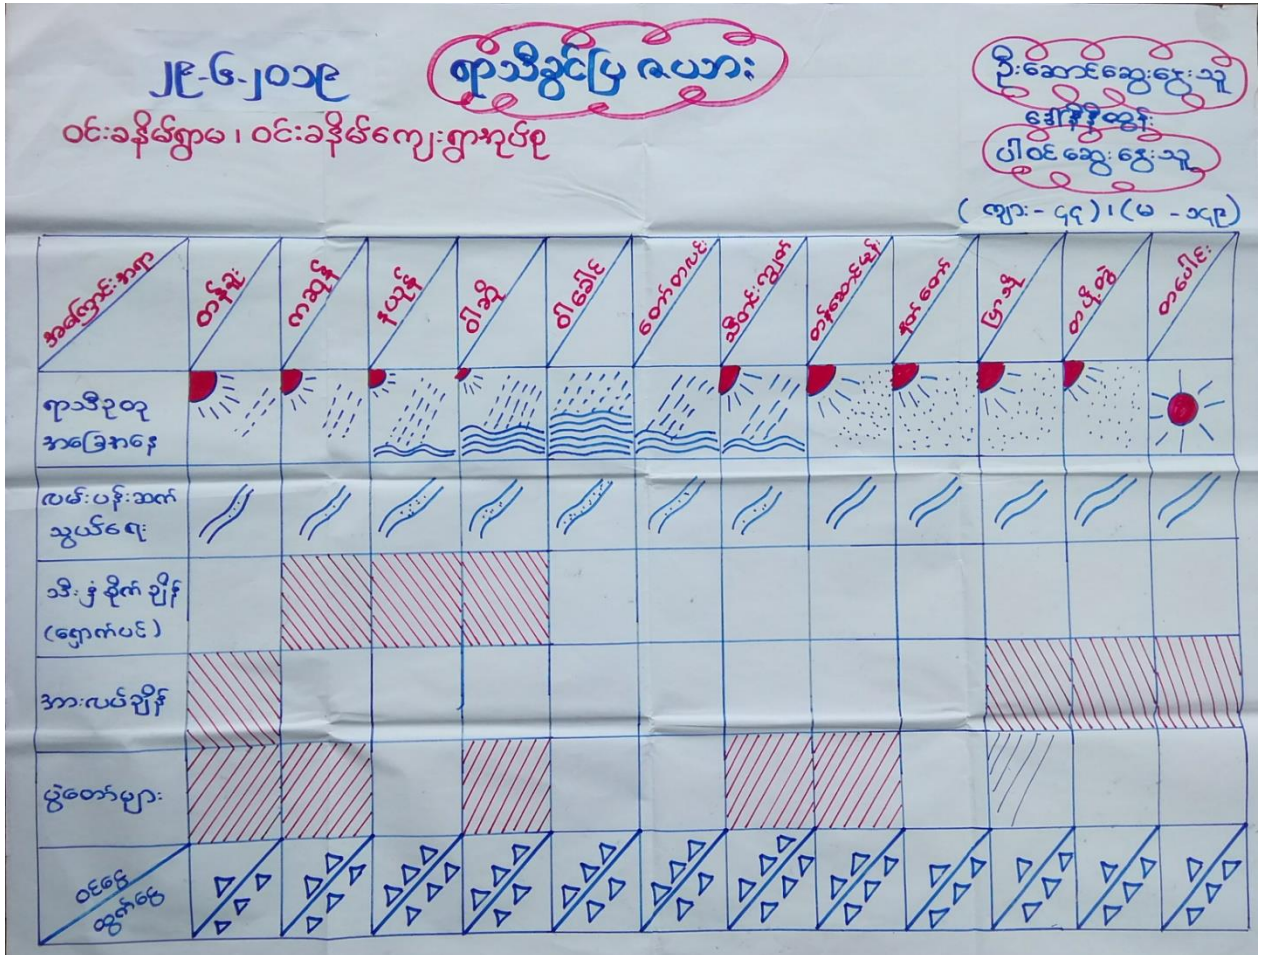 ၂၉-၆-၂၀၁၉
ရာသီခွင်ပြ ဇယား
ဝင်းခနိမ်ရွာမ၊ ဝင်းခနိမ်ကျေးရွာအုပ်စု
ဦးဆောင်ဆွေးနွေးသူ
ဒေါ်နီနီထွန်း
ပါဝင်ဆွေးနွေးသူ
(ကျား - ၄၄)၊ (မ - ၁၄၉)
အကြောင်းအရာ
တန်ခူး
ကဆုန်
နယုန်
ဝါဆို
ဝါခေါင်
တော်သလင်း
သီတင်းကျွတ်
တန်ဆောင်မုန်း
နတ်တော်
ပြာသို
တပို့တွဲ
တပေါင်း
ရာသီဥတု
အခြေအနေ
လမ်းပန်းဆက်
သွယ်ရေး
သီးနှံစိုက်ချိန်
(ရှောက်ပင်)
အားလပ်ချိန်
ပွဲတော်များ
ဝင်ငွေ
ထွက်ငွေ